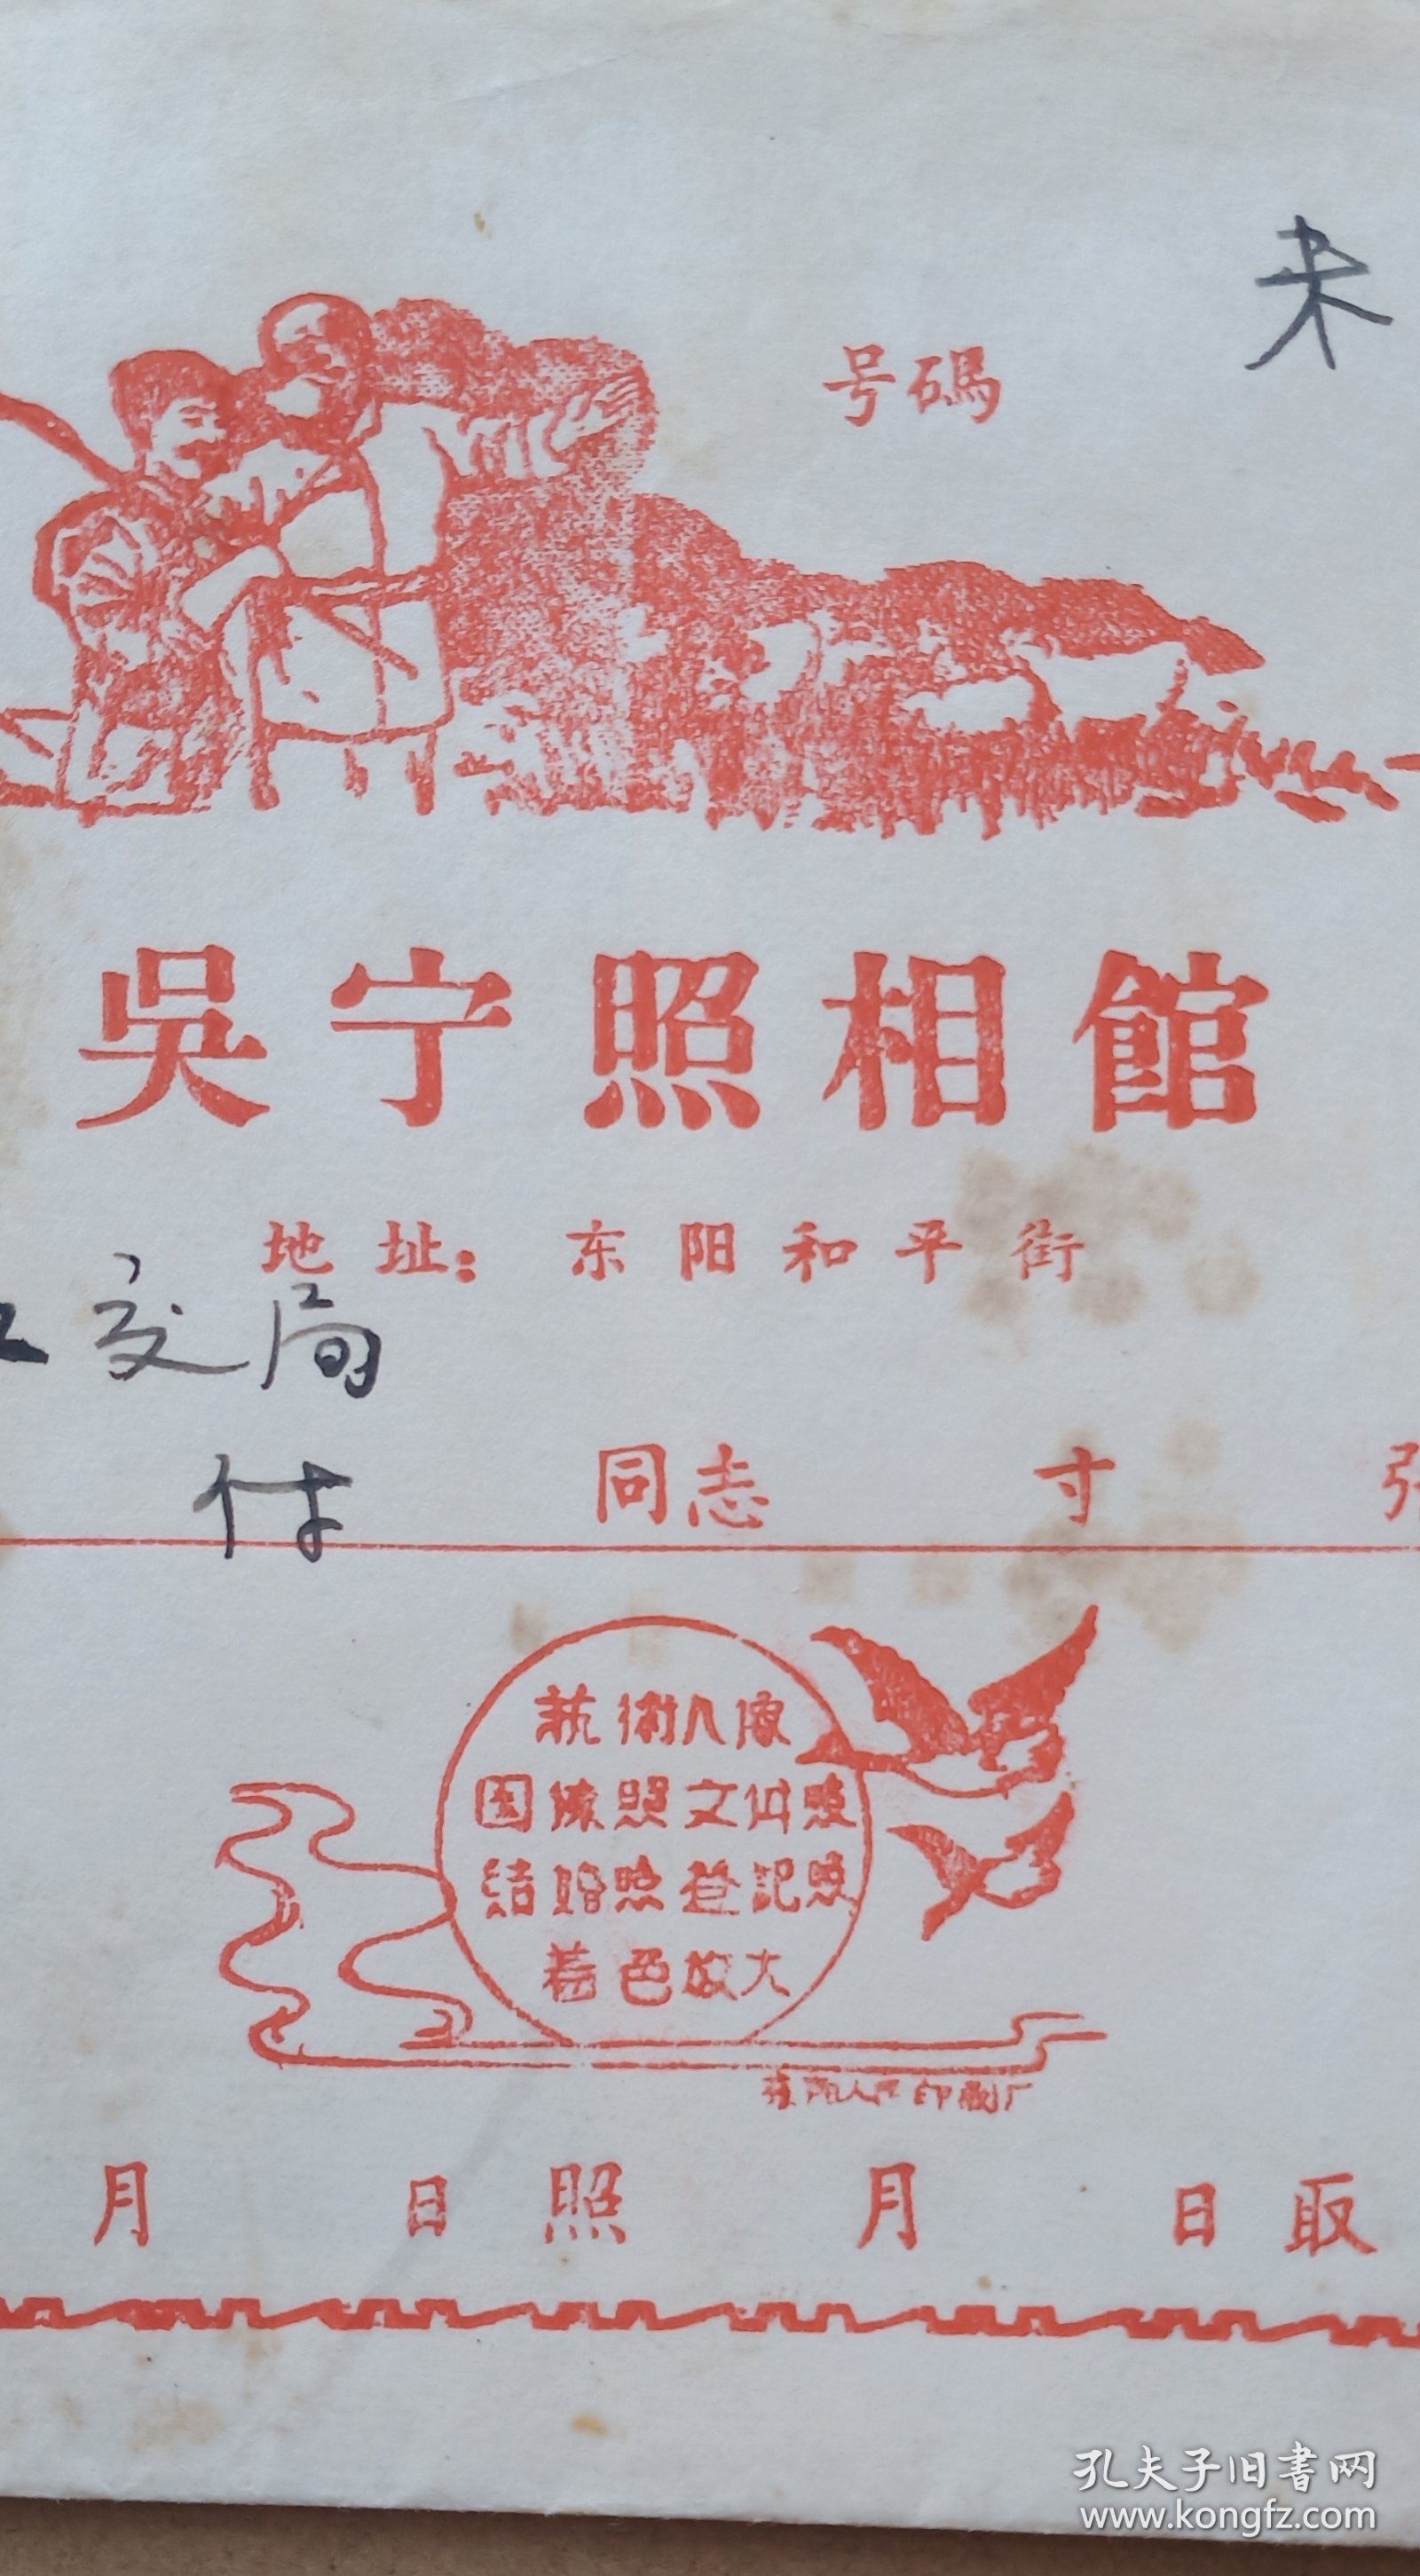 未
号碼
吳宁照相館
地址：东阳和平街
交局
付
同志 寸 张
藝術人像
团像照文件照
结婚照登記照
着色放大
东阳人民印刷厂
月 日照 月 日取
孔夫子旧書网
www.kongfz.com